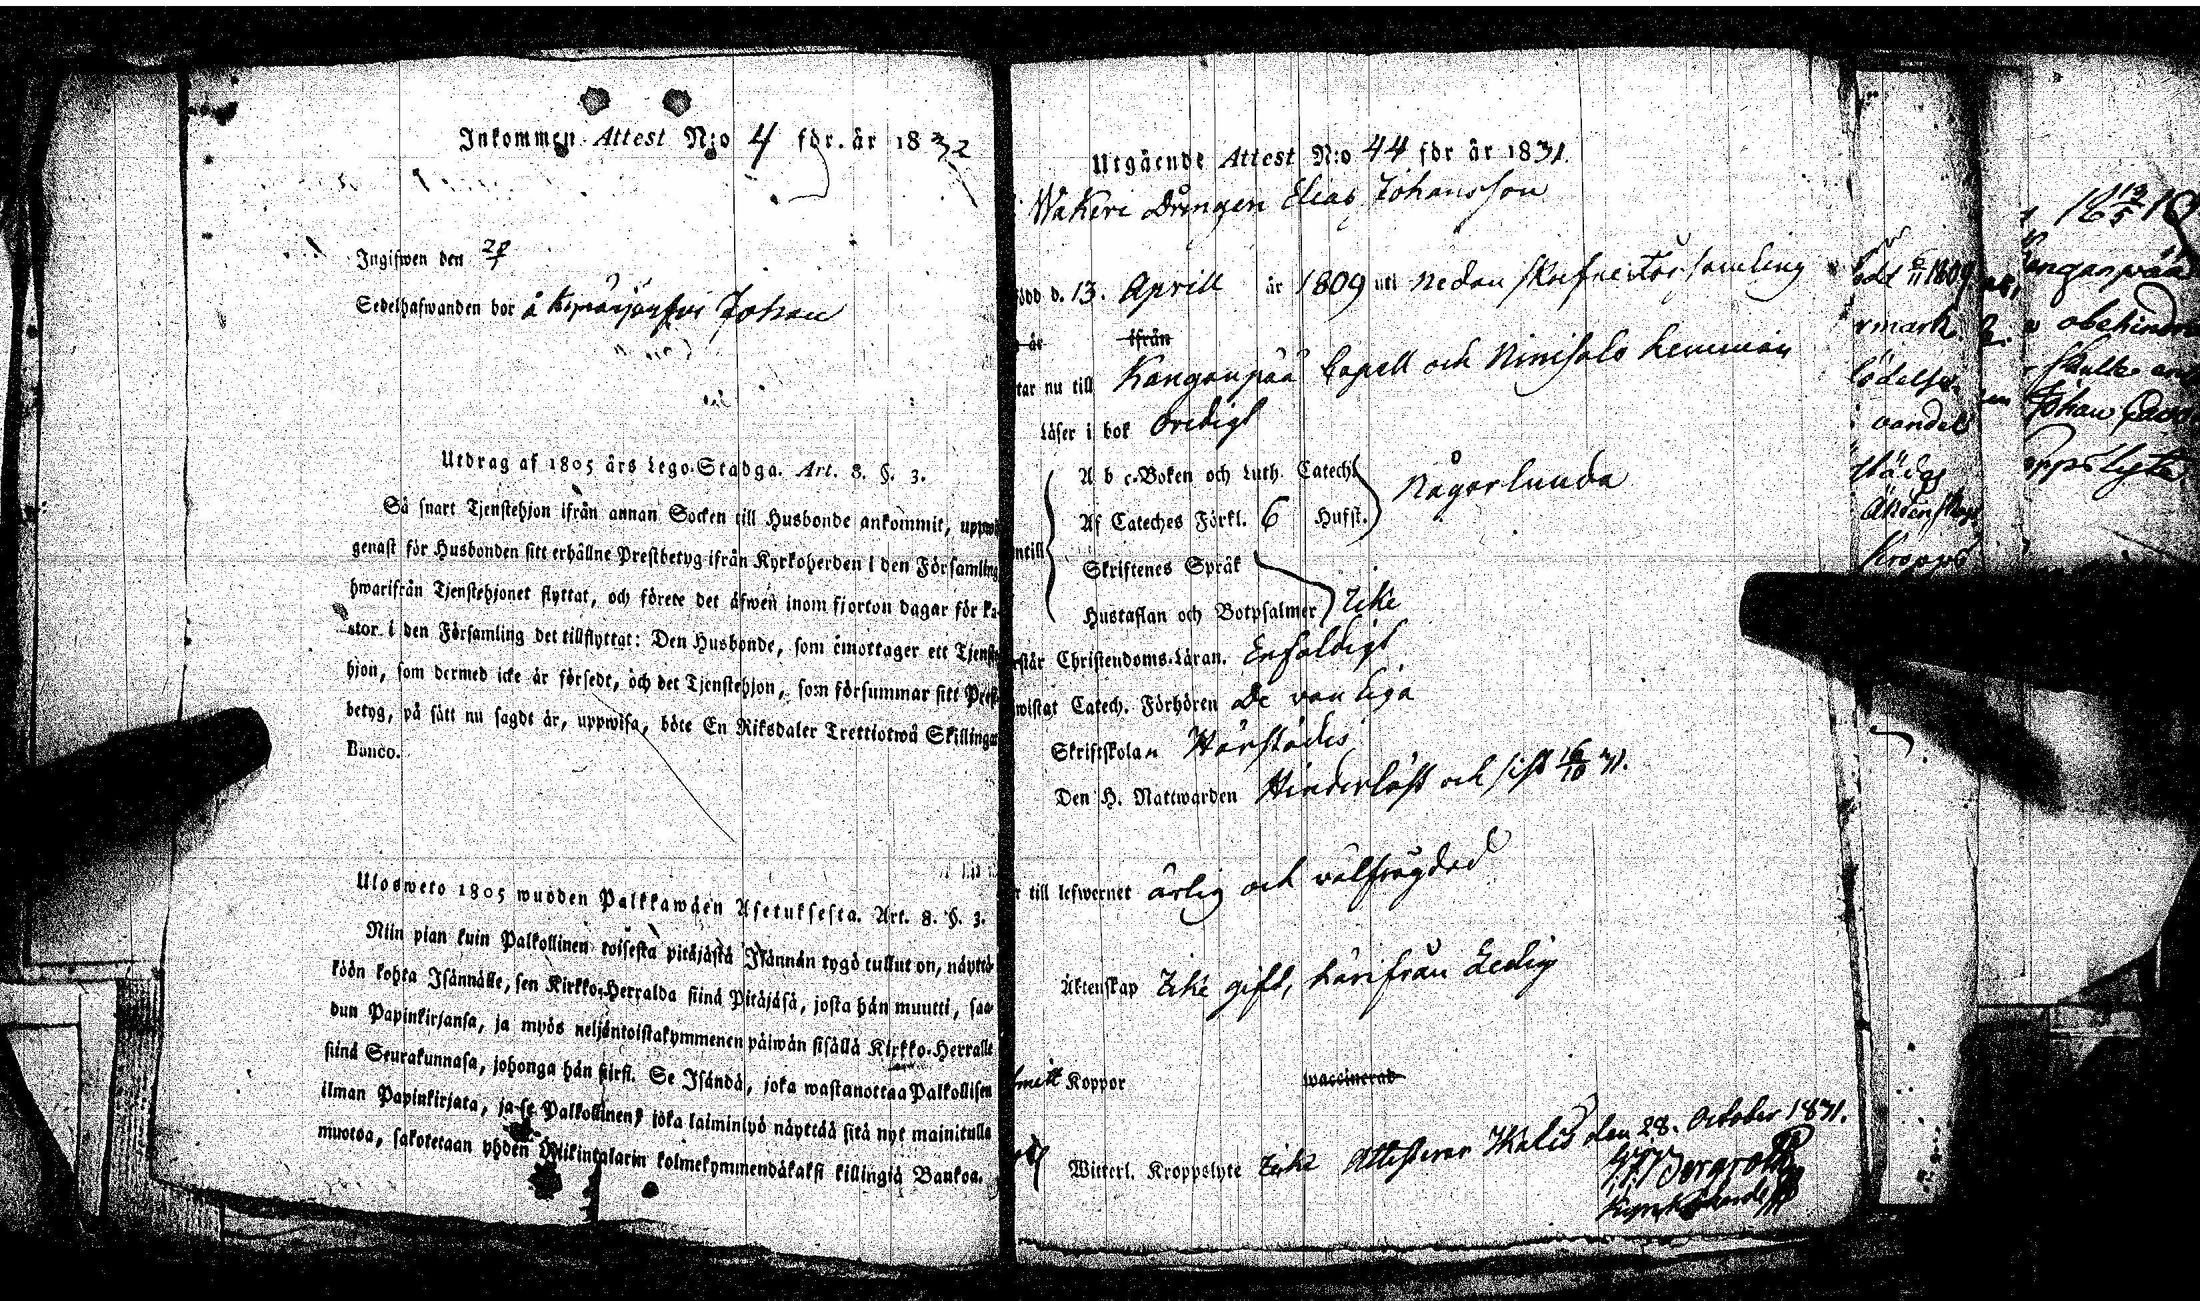 Inkommen Attest N:o 4 för år 1832
Ingifwen den 29/1
Sedelhafwanden bor å Johan
Utdrag af 1805 års Lego-Stadga. Art. 8. §. 3.
Så snart Tjenstehjon ifrån annan Socken till Husbonde ankommit, uppwi
genast för Husbonden sitt erhållne Prestbetyg ifrån Kyrkoherden i den Församling
hwarifrån Tjenstehjonet flyttat, och förete det äfwen inom fjorton dagar för Pa-
stor i den Församling det tillflyttat: Den Husbonde, som emottager ett Tjenste
hjon, som dermed icke är försedt, och det Tjenstehjon, som försummar sitt Prest
betyg, på sätt nu sagdt är, uppwisa, böte En Riksdaler Trettiotwå Skillingar
Banco.
Ulosweto 1805 wuoden Palkkawäen Asetuksesta. Art. 8. §. 3.
Niin pian kuin Palkollinen toisesta pitäjästä Isännän tygö tullut on, näyttä
köön kohta Isännälle, sen Kirkko-Herralda siinä Pitäjäsä, josta hän muutti, saa-
dun Papinkirjansa, ja myös neljäntoistakymmenen päiwän sisällä Kirkko-Herralle
siinä Seurakunnasa, johonga hän siirsi. Se Isändä, joka wastanottaa Palkollisen
ilman Papinkirjata, ja se Palkollinen, joka laiminlyö näyttää sitä nyt mainitulla
muotoa, sakotetaan yhden Riikintalarin kolmekymmendäkaksi killingiä Bankoa.
Utgående Attest N:o 44 för år 1831.
Drängen Elias Johansson
född d. 13. Aprill år 1809 uti nedanskrefne Församling
år ifrån
tar nu till Kanganpää Capell och Niinisalo hemman
Läser i bok Oredigt
A b c-Boken och Luth. Catech.
Af Cateches Förkl. 6 Hufst. Någorlunda
ntill
Skriftenes Språk
Hustaflan och Botpsalmer Icke
rstår Christendoms-Läran. Enfaldigt
wistat Catech. Förhören De vanliga
Skriftskolan Härstädes
Den H. Nattwarden Hinderlöst och sist 16/10 31.
r till lefwernet ärlig och välfrägdad
Äktenskap Icke gift, härifrån Ledig
Koppor waccinerad
Witterl. Kroppslyte Icke Attesterar Ikalis den 28. October 1831.
Bergroth
födt 6/11 1809
rmark
vandel
Äktenskap
Kropps
obehindra
Johan
oppslyte